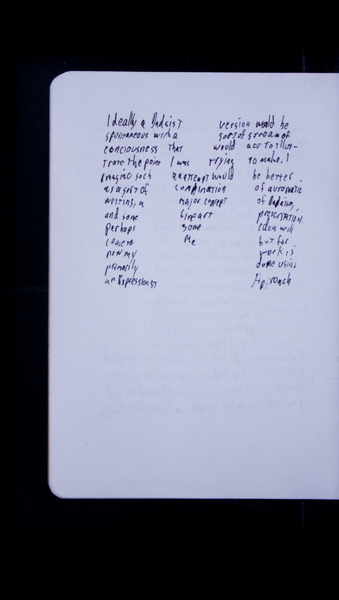 Ideally a Dadaist version would be
spontaneous with a sort of stream of
conciousness that would act to illus-
trate the point I was trying to make. I
imagine such an attempt would be better
as a sort of combination of automatic
writing, a major concept of Dadaism,
and some line art
perhaps some idea will
come to me but for
now my work is
primarily done using
an Expressionist Approach